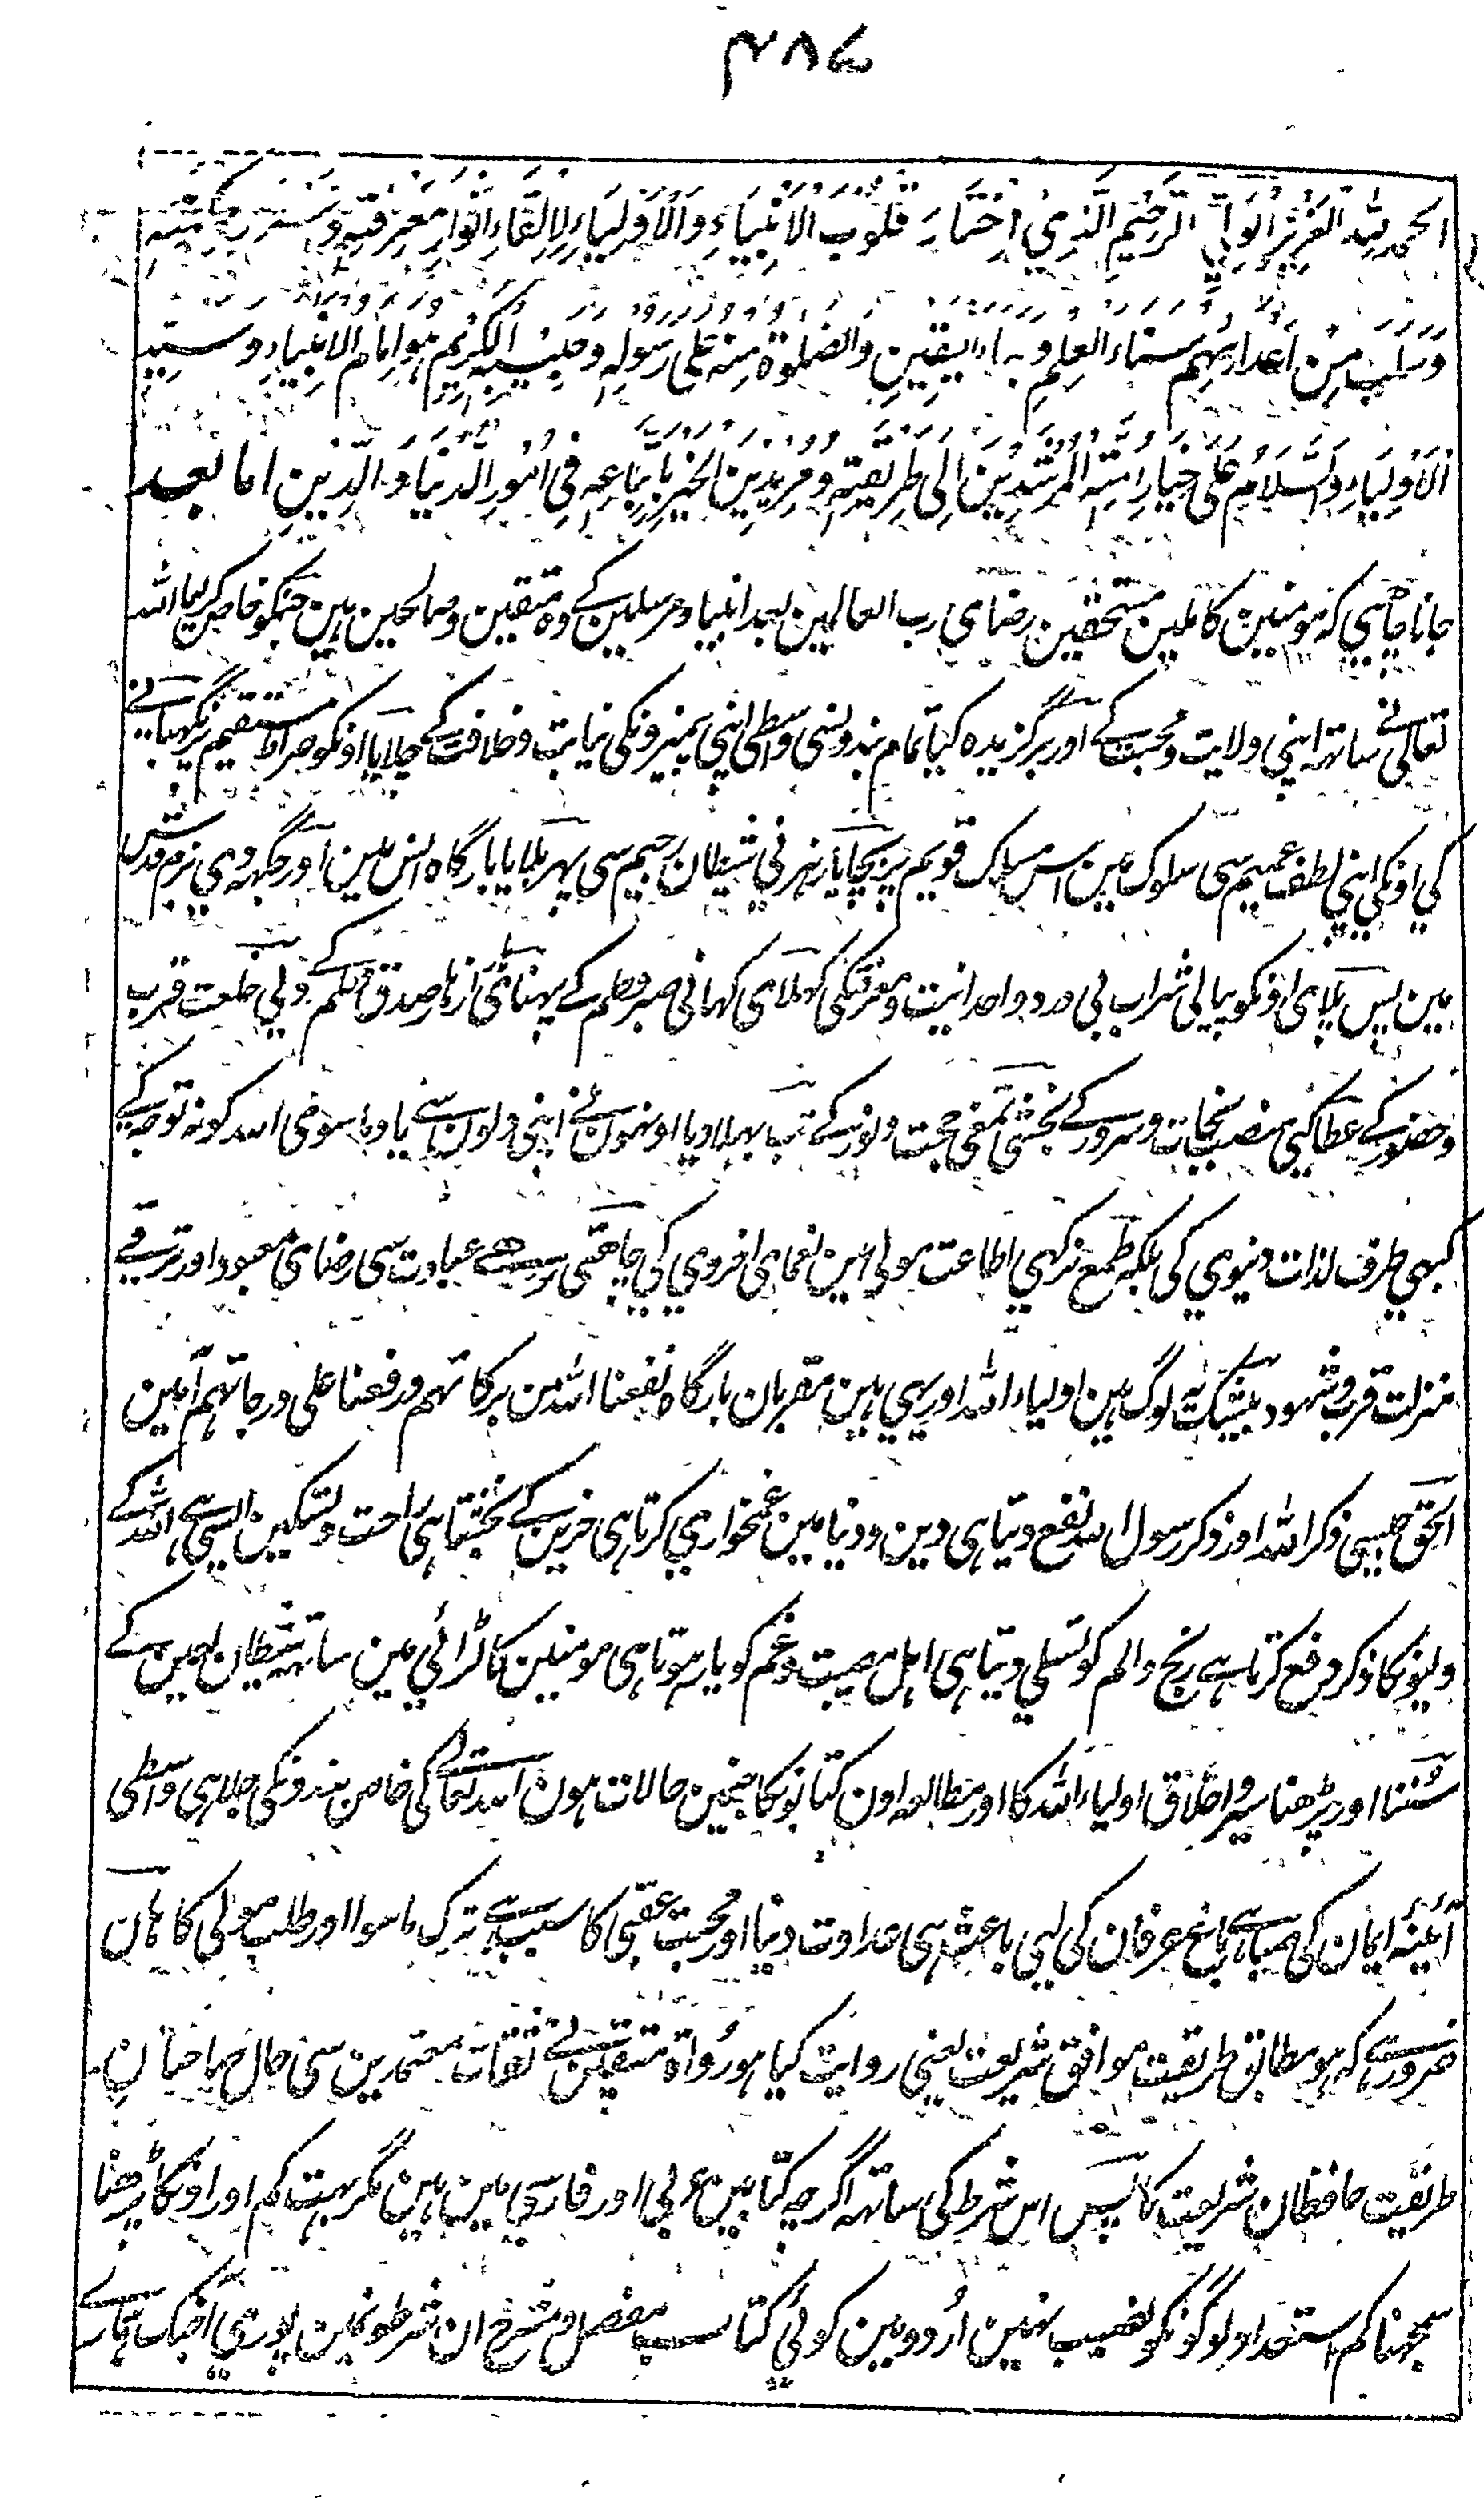 ۷۸۶
الحمد للہ العزیز الولی الرحیم الذی اختار قلوب الانبیاء والاولیاء لالقاء انوار معرفتہ و
وسلب من اعدائہم سناء العلم وبہاء الیقین والصلوۃ منہ علی رسولہ وحبیبہ الکریم ہو امام الانبیاء وسید
الاولیاء والسلام علی خیار امتہ المرشدین الی طریقتہ ومریدین الخیر باتباعہ فی امور الدنیا والدین اما بعد
جانا چاہیی کہ مومنین کاملین مستحقین رضای رب العالمین بعد انبیا و مرسلین کے وہ متقین وصالحین ہین جنکو خاص کر لیا اللہ
تعالی نے ساتہہ اپنی ولایت ومحبت کے اور برگزیدہ کیا تمام بندونسی واسطی اپنی پیمبرونکی نیابت وخلافت کے چلایا اونکو صراط مستقیم پر نگہبانے
کی اونکی اپنی لطف عمیم سی سلوک مین اس مسلک قویم پر بچایا رہزنی شیطان رجیم سی پہر بلایا بارگاہ انس مین اور جگہہ دی بزم قدس
مین پس پلای اونکو پیالی شراب بی درد واحدانیت ومعرفتکی کہلای کہانی صبر وحلم کے پہنائی ازار صدق وحکم کے دی خلعت قرب
وحضور کے عطا کئی منصب نجات وسرور کے بخشی تمغی محبت ونور کے تب بہلا دیا اونہون نے اپنی دلون سے یاد ماسوی اللہ کو نہ توجہ کے
کبہی طرف لذات دنیوی کی بلکہ طمع نرکہی اطاعت مولی مین نعمای اخروی کی چاہتی رہے عبادت سی رضای معبود اور ترقے
منزلت قرب وشہود بیشک یہ لوگ ہین اولیاء اللہ اور یہی ہین مقربان بارگاہ نفعنا اللہ من برکاتہم ورفعنا علی درجاتہم آمین
الحق جیسی ذکر اللہ اور ذکر رسول اللہ نفع دیتا ہی دین ودنیا مین غمخواری کرتا ہی حزین کے بخشتا ہی راحت وتسکین ایسی ہی اللہ کے
ولیونکا ذکر دفع کرتا ہے رنج والم کو تسلی دیتا ہی اہل مصیبت وغم کو یار ہوتا ہی مومنین کا لڑائی مین ساتہہ شیطان لعین کے
سننا اور پڑھنا سیر واخلاق اولیاء اللہ کا اور مطالعہ اون کتابونکا جنمین حالات ہون اللہ تعالے کی خاص بندونکی جلا ہی واسطی
آئینہ ایمان کی صبا ہے باغ عرفان کی لیی باعث ہی عداوت دنیا اور محبت عقبی کا سبب ہے ترک ماسوا اور طلب مولی کا ہان
ضرور ہے کہ ہو مطابق طریقت موافق شریعت یعنی روایت کیا ہو رواۃ متقین نے ثقات معتمدین سی حال صاحبان
طریقت حافظان شریعت کا پس اس شرط کی ساتہہ اگرچہ کتابین عربی اور فارسی مین ہین مگر بہت کم اور اونکا پڑھنا
سمجہنا کم استعداد لوگونکو نصیب نہین اردو مین کوئی کتاب مفصل ومشرح ان شرطونمین پوری ابتک ہمارے